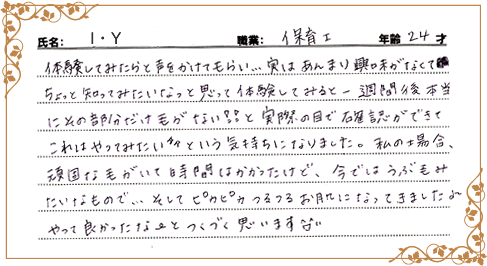 氏名: I・Y 職業: 保育士 年齢 24 才
体験してみたらと声をかけてもらい…実はあんまり興味がなくて
ちょっと知ってみたいなっと思って体験してみると一週間後本当
にその部分だけ毛がない!!と実際の目で確認ができて
これはやってみたい!!という気持ちになりました。私の場合、
頑固な毛がいて時間はかかったけど、今ではうぶ毛み
たいなもので…そしてピカピカつるつるお肌になってきました
やって良かったなとつくづく思います